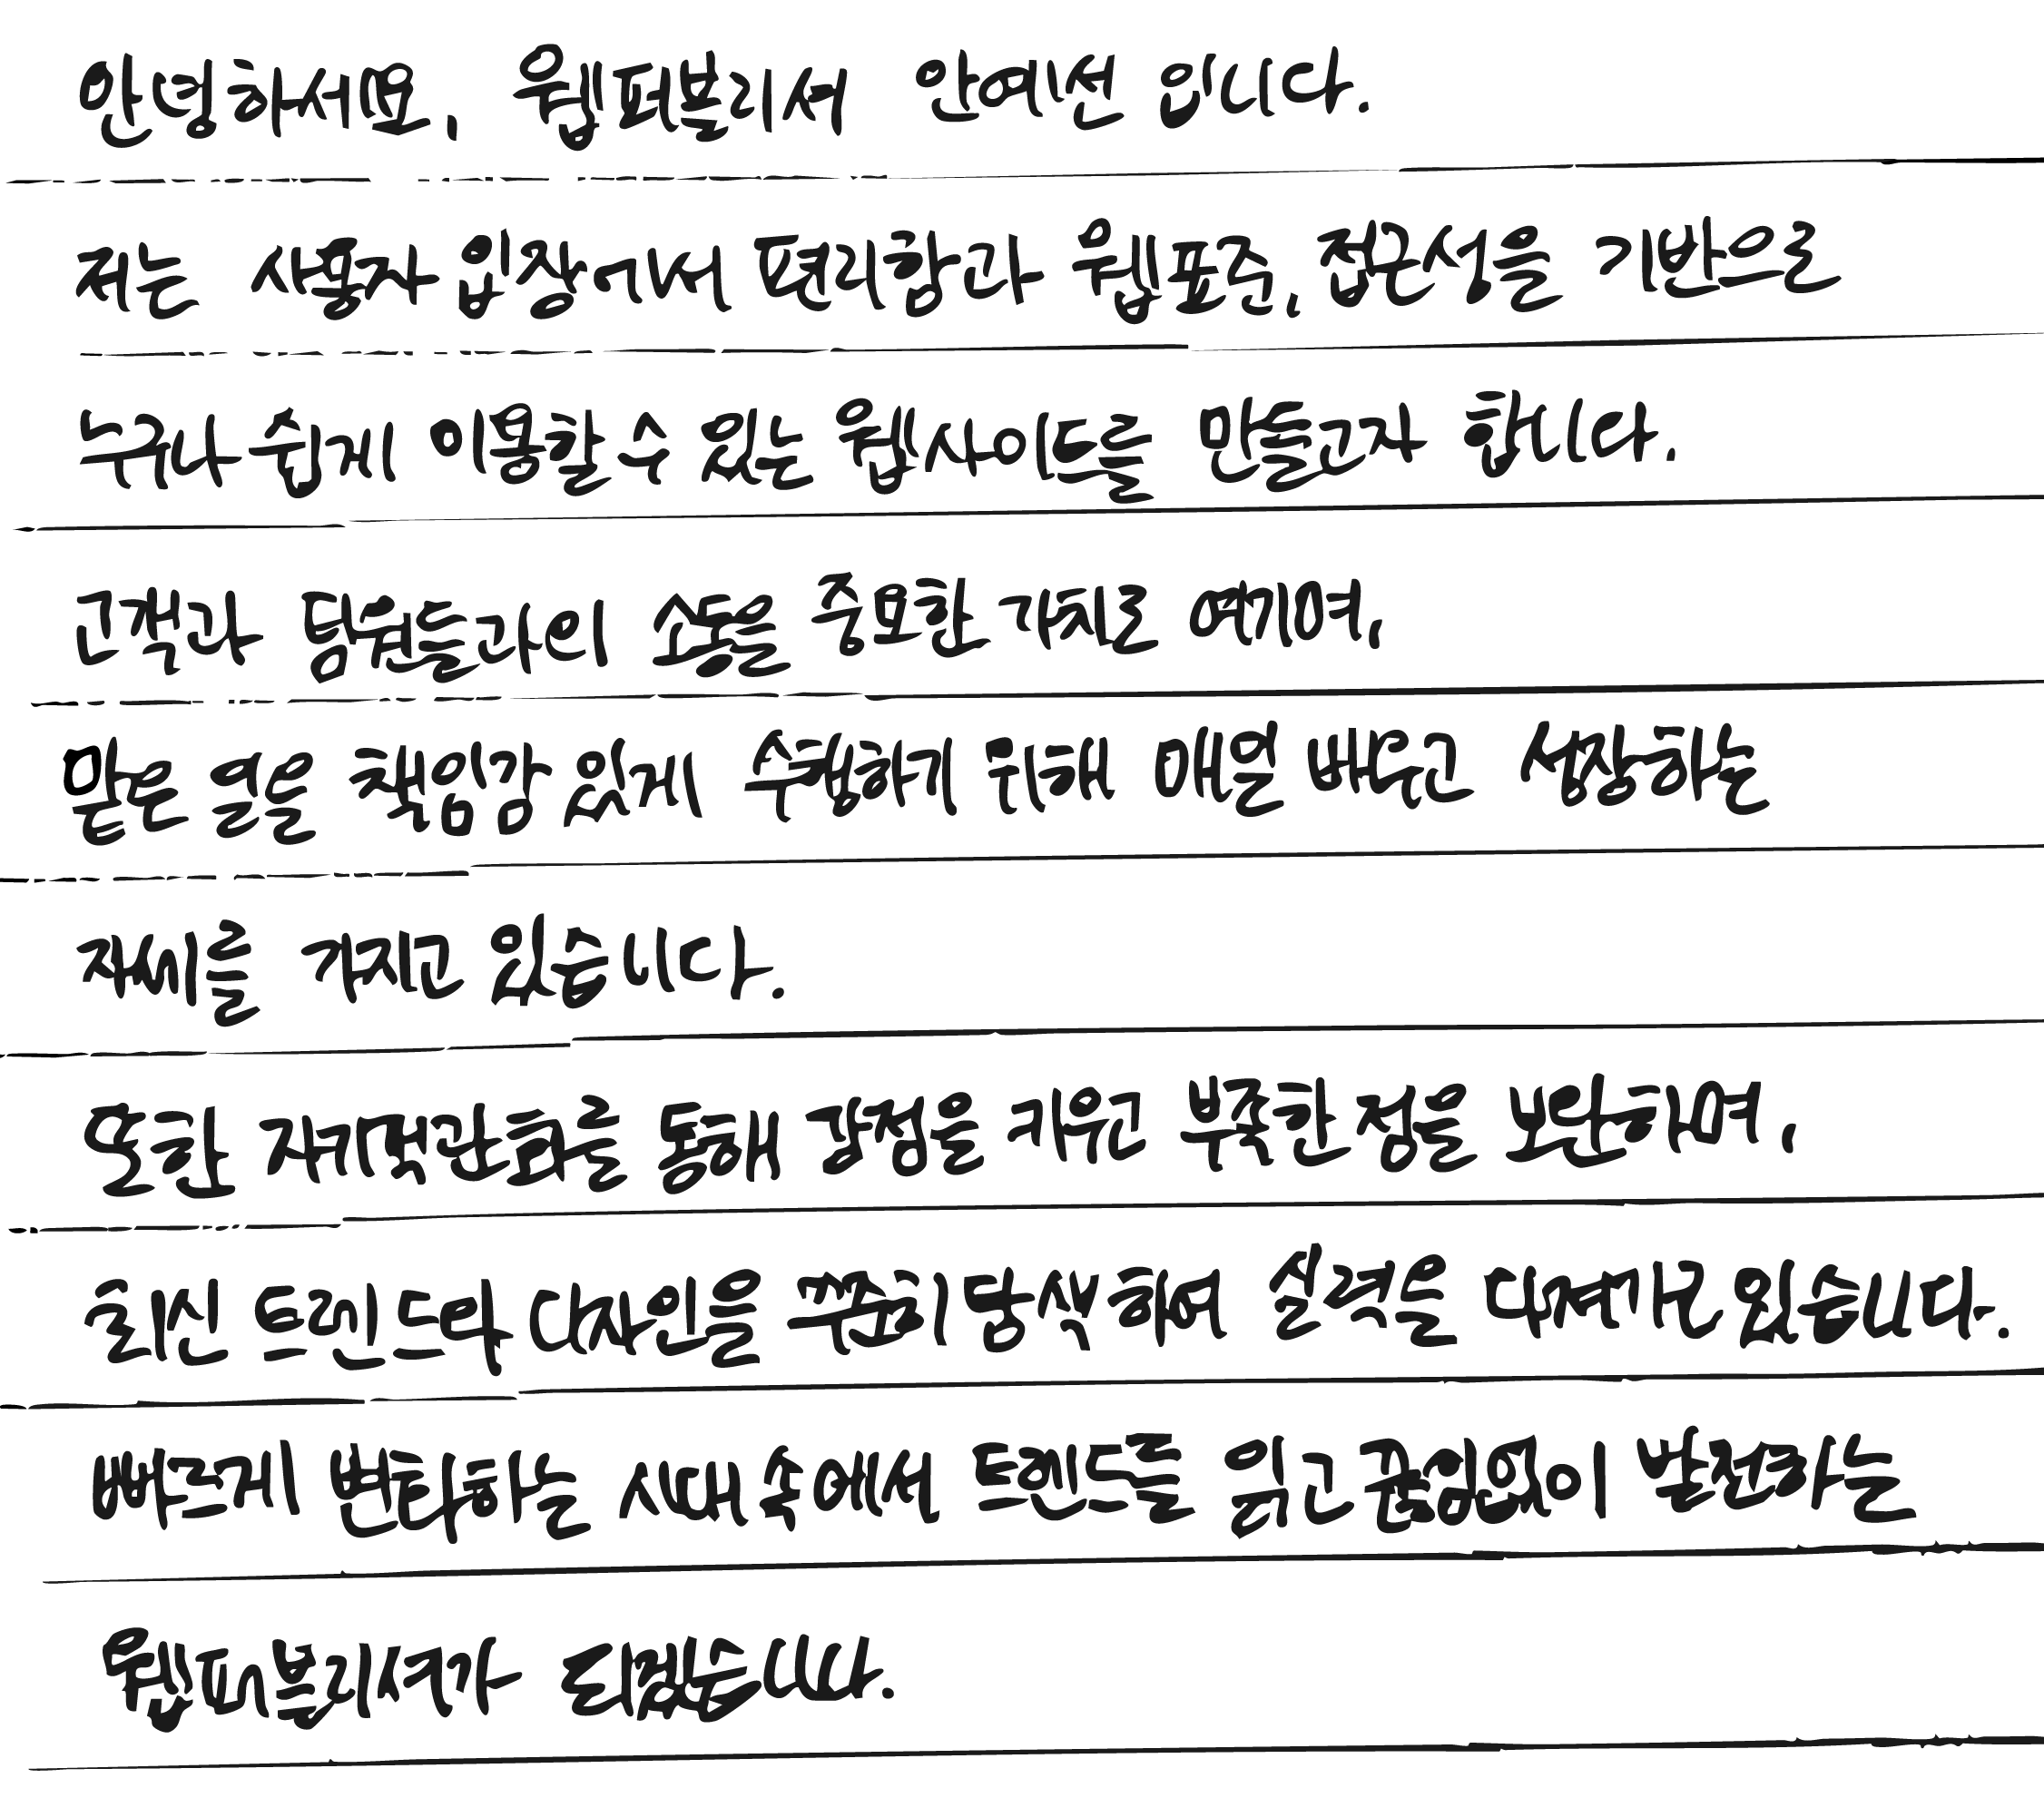 안녕하세요, 웹퍼블리셔 안예선 입니다.
저는 사용자 입장에서 편리함과 웹표준, 접근성을 기반으로
누구나 쉽게 이용할 수 있는 웹사이트를 만들고자 합니다.
고객과 팀원들과의 소통을 중요한 가치로 여기며,
맡은 일을 책임감 있게 수행하기 위해 매일 배우고 성장하는
자세를 가지고 있습니다.
또한 자기개발을 통해 강점을 키우고 부족한 점을 보완하며,
최신 트렌드와 디자인을 꾸준히 분석하여 실력을 다져가고 있습니다.
빠르게 변화하는 시대 속에서 트렌드를 읽고 끊임없이 발전하는
웹퍼블리셔가 되겠습니다.